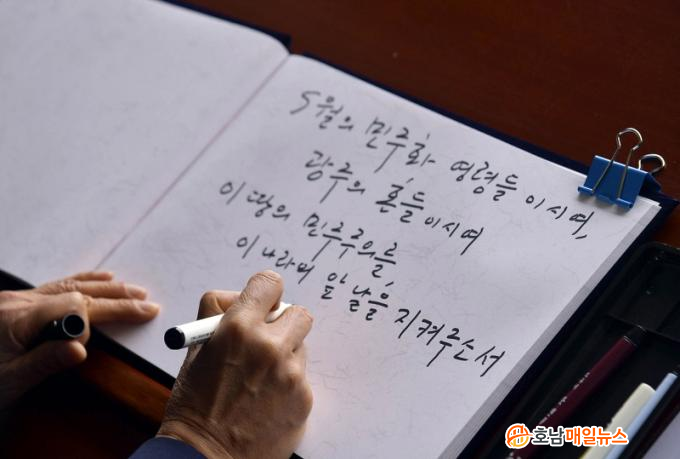 5월의 민주화 영령들이시여,
광주의 혼들이시여
이 땅의 민주주의를,
이 나라의 앞날을 지켜주소서
호남매일뉴스